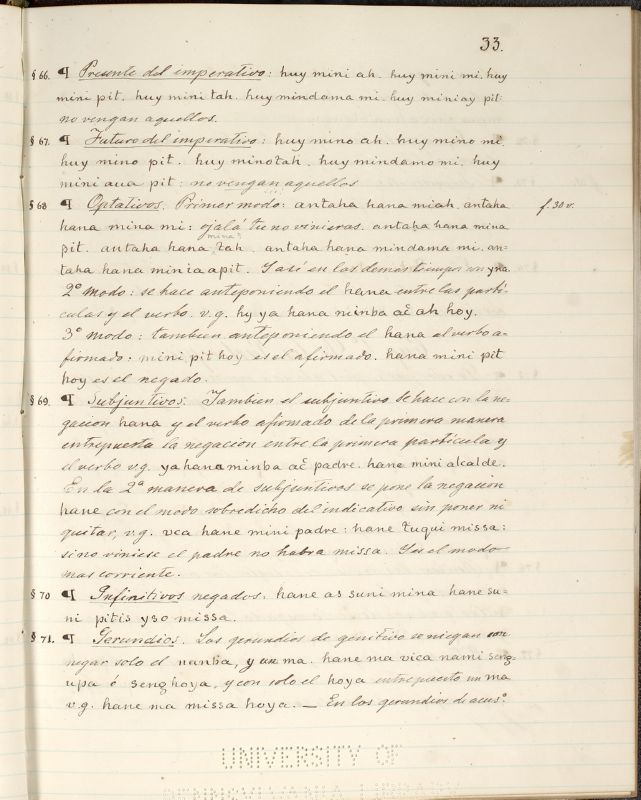 33.
§ 66. ¶ Presente del imperativo: huy mini ah. huy mini mi. huy
mini pit. huy mini tah. huy mindama mi. huy miniay pit:
no vengan aquellos.
§ 67. ¶ Futuro del imperativo: huy mino ah. huy mino mi.
huy mino pit. huy minotah. huy mindamo mi. huy
mini aua pit: no vengan aquellos
§ 68 ¶ Optativos. Primer modo: antaha hana miah. antaha f. 30 v.
hana mina mi: ojalá tu no vinieras. antaha hana mina
pit. antaha hana mina? tah. antaha hana mindama mi. an-
taha hana miniaapit. Y así en los demas tiempos
2º modo: se hace anteponiendo el hana entre las partí-
culas y el verbo. v.g. hy ya hana ninba ac̃ ah hoy.
3º modo: tambien anteponiendo el hana al verbo a-
firmado: mini pit hoy es el afirmado. hana mini pit
hoy es el negado.
§ 69. ¶ Subjuntivos. Tambien el subjuntivo se hace con la ne-
gacion hana y el verbo afirmado de la primera manera
entrepuesta la negacion entre la primera partícula y
el verbo v.g. ya hana minba ac̃ padre. hane mini alcalde.
En la 2ª manera de subjuntivos se pone la negacion
hane con el modo sobredicho del indicativo sin poner ni
quitar, v.g. vca hane mini padre: hane tuqui missa:
si no viniese el padre no habra missa. Y es el modo
mas corriente.
§ 70 ¶ Infinitivos negados: hane as suni mina hane su=
ni pitis yso missa.
§ 71. ¶ Gerundios. Los gerundios de genitivo se niegan con
negar solo el nanba, y un ma. hane ma vica nami seng-
upa ó senghoya, y con solo el hoya entrepuesto un ma
v.g. hane ma missa hoya. — En los gerundios de acusº
UNIVERSITY OF
PENNSYLVANIA LIBRARY